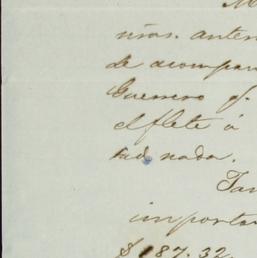 M
niras. anter
de acompa
Guerrero q.
el flete á
nada.
Tam
importa
$ 187.32.